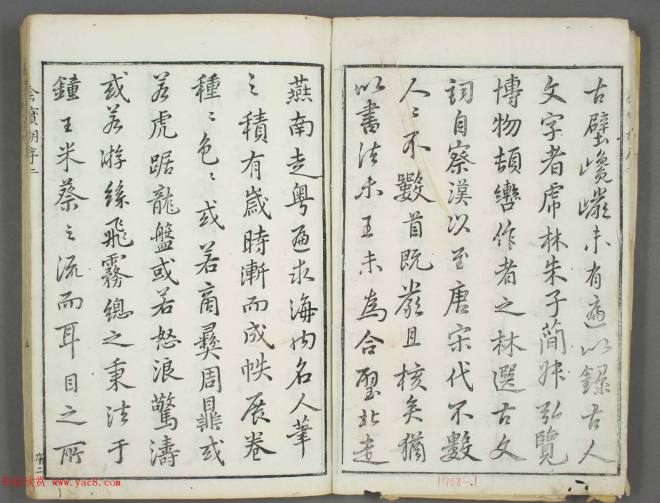 古壁巉巖未有適以錄古人
文字者虎林朱子簡妹弘覽
博物頡轡作者之林選古文
詞自秦漢以至唐宋代不數
人人不數首既嚴且核矣猶
以書法未王未為合璧北走
燕南走粵遍求海內名人筆
之積有歲時漸而成帙展卷
種種色色或若商彝周鼎或
若虎踞龍盤或若怒浪驚濤
或若游絲飛霧總之秉法于
鐘王米蔡之流而耳目之所
序二
1708-1
www.yac8.com